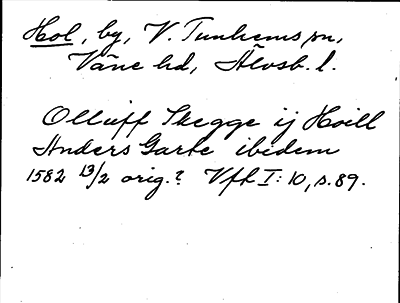 Hol, by, V. Tunhems sn,
Väne hd, Älvsb. l.
Olluff Skegge ij Hoill
Anders Garte ibidem
1582 13/2 orig.? Vfh I: 10, s. 89.